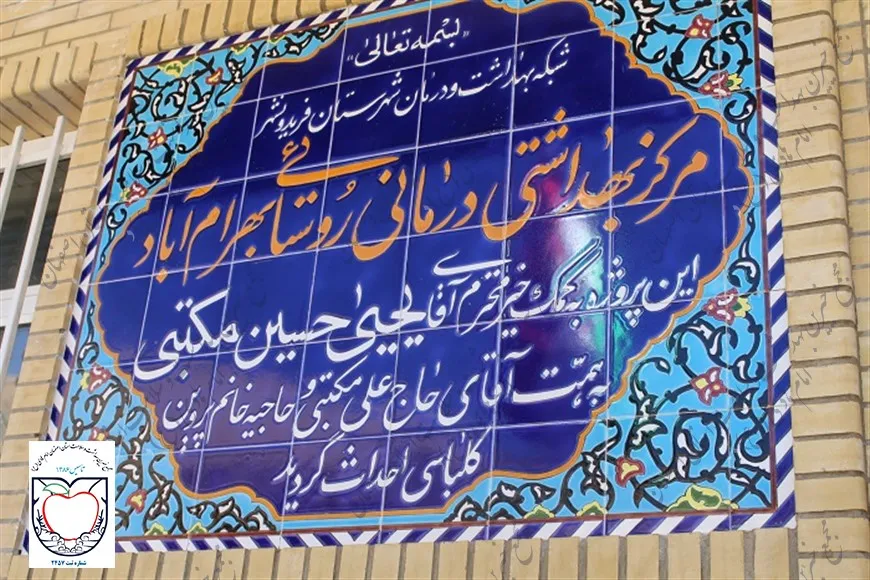 «بسمه تعالی»
شبکه بهداشت و درمان شهرستان فریدونشهر
مرکز بهداشتی درمانی روستائی بهرام آباد
این پروژه به کمک خیر محترم آقای یحیی حسین مکتبی
به همت آقای حاج علی مکتبی و حاجیه خانم پروین
کلباسی احداث گردید
تاسیس ۱۳۸۶
شماره ثبت ۲۴۵۷